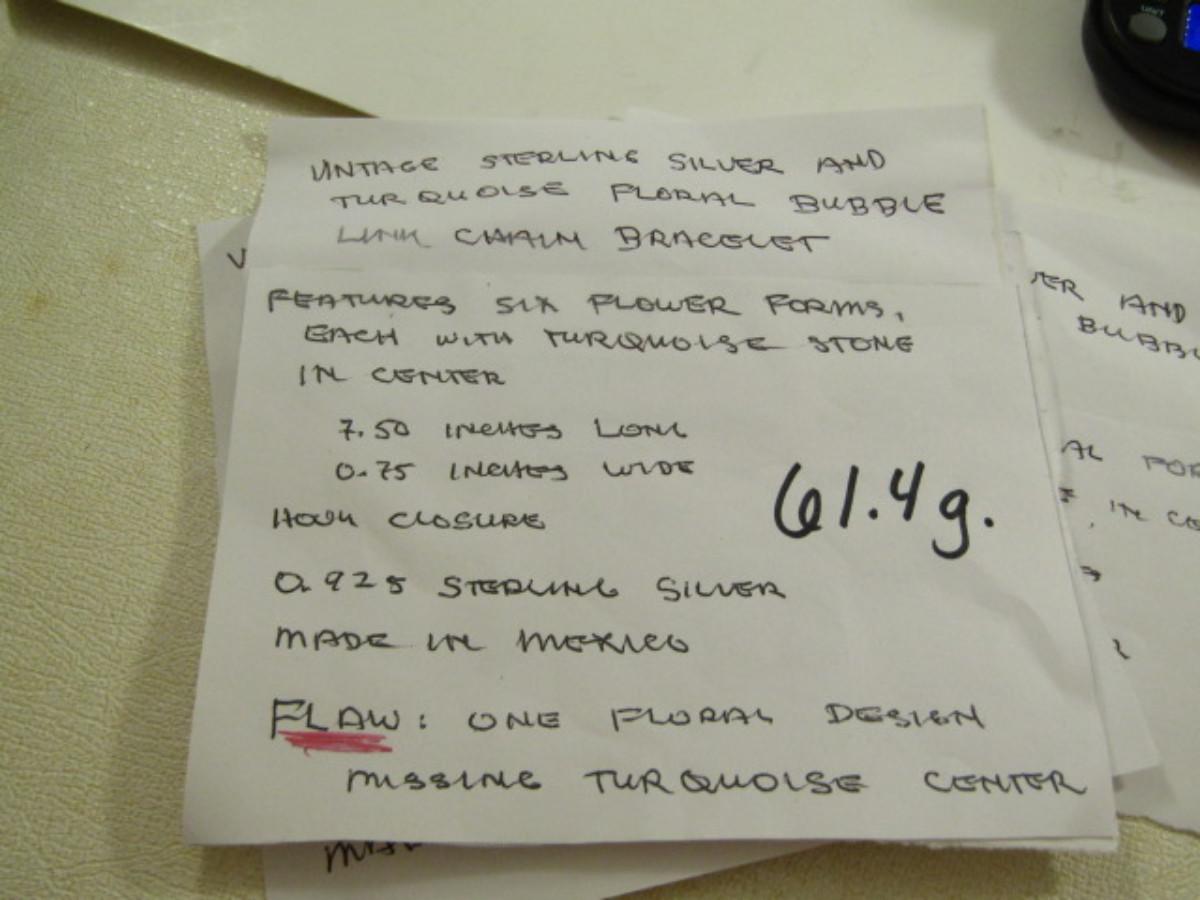 VINTAGE STERLING SILVER AND
TURQUOISE FLORAL BUBBLE
LINK CHAIN BRACELET
FEATURES SIX FLOWER FORMS,
EACH WITH TURQUOISE STONE
IN CENTER
7.50 INCHES LONG
0.75 INCHES WIDE
61.4g.
HOOK CLOSURE
0.925 STERLING SILVER
MADE IN MEXICO
FLAW: ONE FLORAL DESIGN
MISSING TURQUOISE CENTER
AND
UNIT